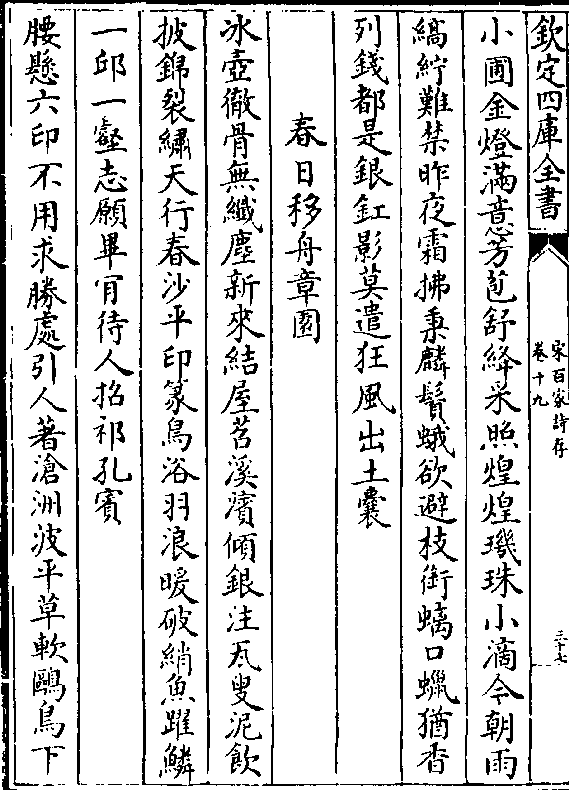 欽定四庫全書
宋百家詩存
卷十九
三十七
小圃金燈滿意芳苞舒絳采照煌煌璣珠小滴今朝雨
縞紵難禁昨夜霜拂棗麟鬚蛾欲避枝銜螭口蠟猶香
列錢都是銀釭影莫遣狂風出土囊
春日移舟章園
冰壺徹骨無纖塵新來結屋苕溪濱傾銀注瓦叟泥飲
披錦裂繡天行春沙平印篆鳥浴羽浪暖破綃魚躍鱗
一邱一壑志願畢肎待人招祁孔賓
腰懸六印不用求勝處引人著滄洲波平草軟鷗鳥下